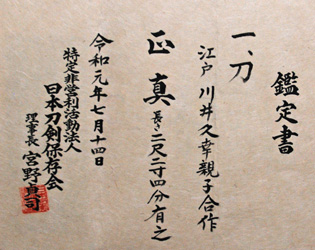 鑑定書
一、刀
江戸 川井久幸親子合作
正真 長さ二尺二寸四分有之
令和元年七月十四日
特定非営利活動法人
日本刀剣保存会
理事長 宮野貞司